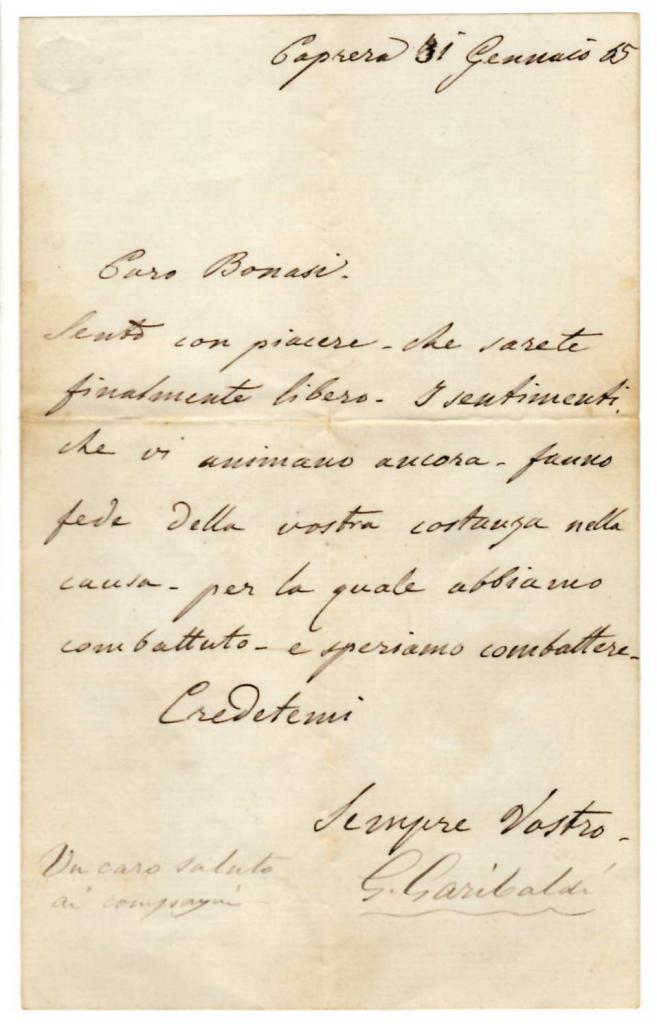 Caprera 31 Gennaio 65
Caro Bonasi.
Sento con piacere - che sarete
finalmente libero - I sentimenti
che vi animano ancora - fanno
fede della vostra costanza nella
causa - per la quale abbiamo
combattuto - e speriamo combattere -
Credetemi
Sempre Vostro -
G. Garibaldi
Un caro saluto
ai compagni -